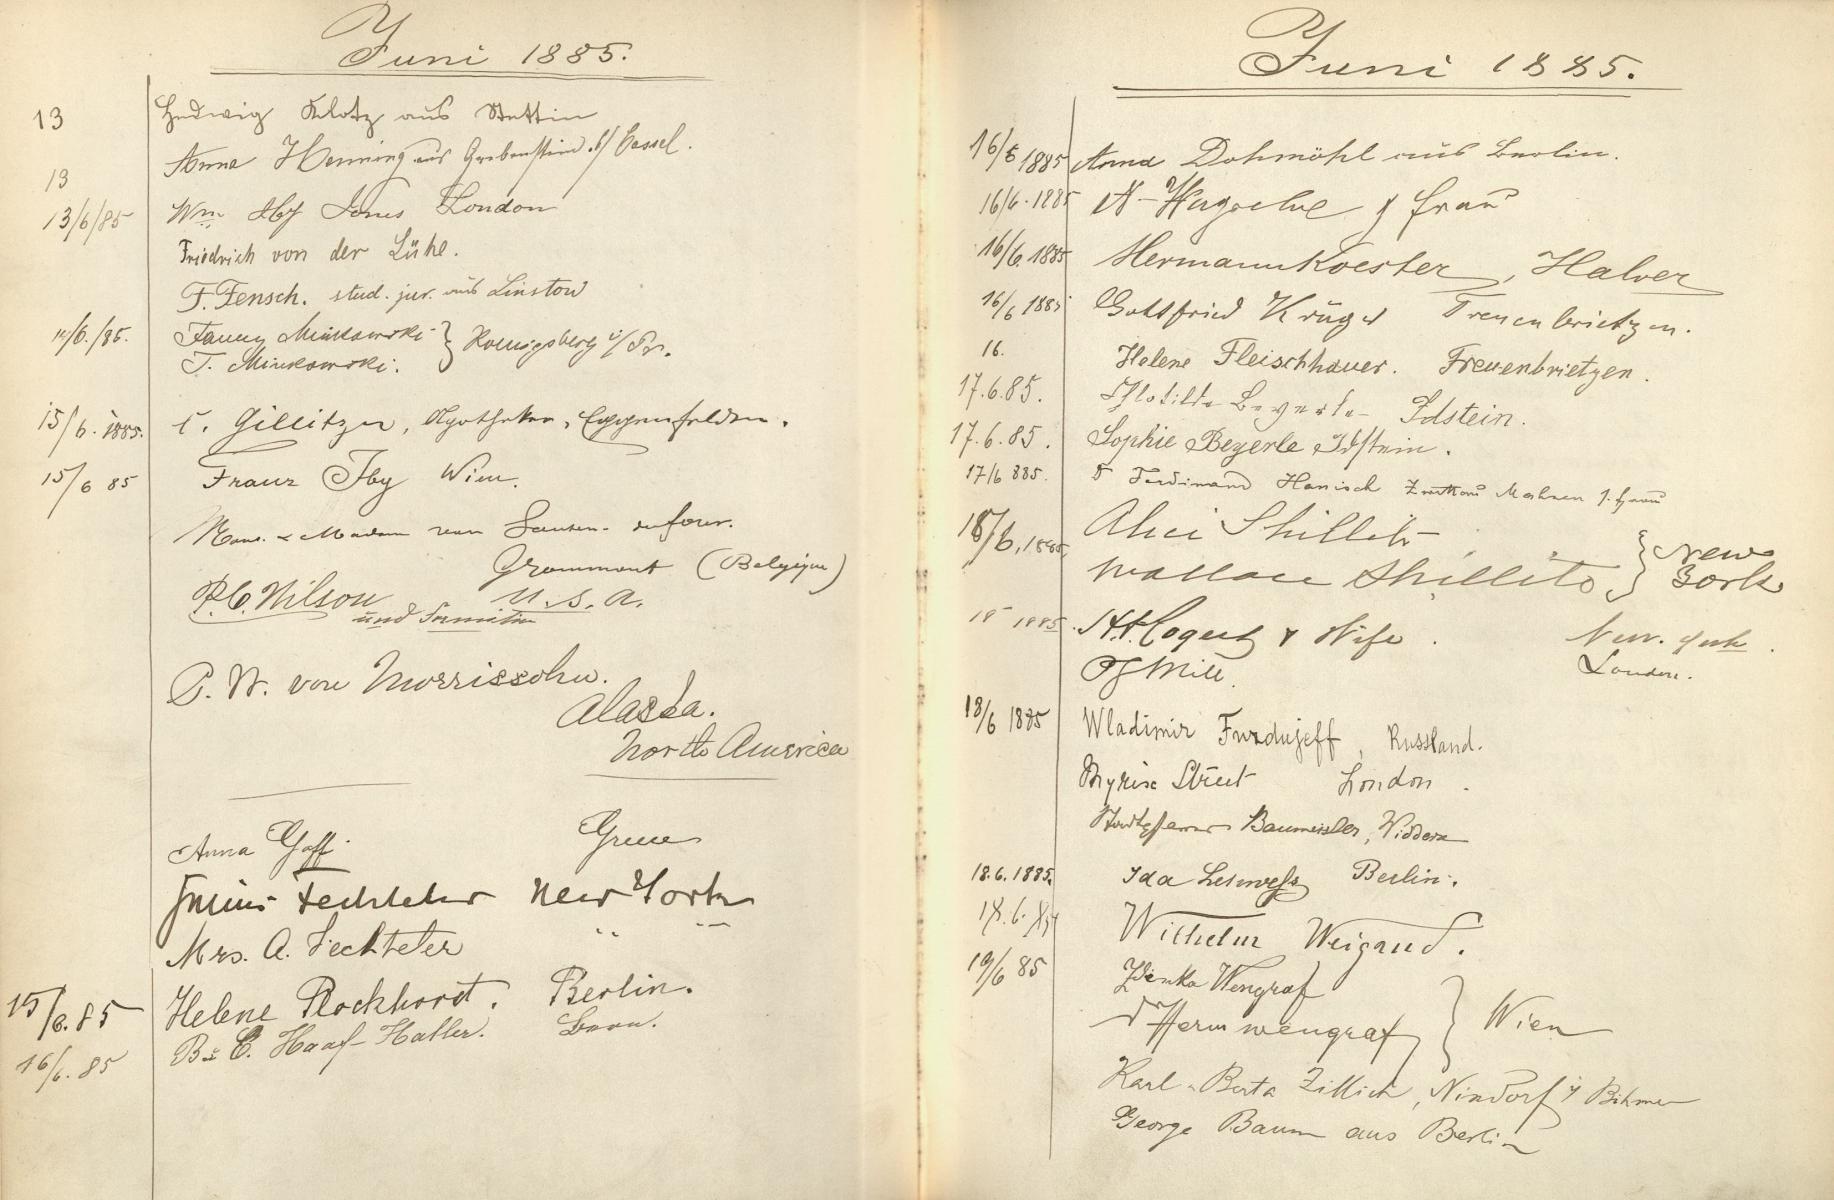 Juni 1885.
13 Hedwig Klotz aus Stettin
13 Anna Henning aus Grebenstein b/ Cassel.
13/6/85 Wm Jones London
Friedrich von der Lühe.
F. Fensch. stud. jur. aus Linstow
14/6./85. Fanny Minkowski } Koenigsberg i/Pr.
T. Minkowski.
15/6. 1885. Gillitzer, Apotheker, Eggenfelden.
15/6 85 Franz Iby Wien.
Mons. & Madam van
Grammont (Belgique)
P.C. Wilson U.S.A.
und
P. W. von Morrissohn.
Alaska.
North America
Anna Goff.
Julius Fechteler New York
Mrs. A. Fechteler " "
15/6. 85 Helene Plockhorst. Berlin.
16/6. 85 C. Haaf-Haller. Bern.
Juni 1885.
16/6 1885 Anna Dohmöhl aus Berlin.
16/6. 1885 & Frau
16/6. 1885 Hermann Koester, Halver
16/6 1885 Gottfried Krüger Treuenbrietzen.
16. Helene Fleischhauer. Treuenbrietzen.
17.6.85. Klotilde Beyerle Idstein.
17.6.85. Sophie Beyerle Idstein.
17/6 885. Ferdinand Hanisch Zwittau Mähren
18/6. 1885. Shillito } New
Wallace Shillito York
18 1885. & Wife. New. York.
Mill. London.
18/6 1885 Wladimir Furdujeff, Russland.
Street London.
Stadtpfarrer Baumeister, Widdern
18.6.1885. Ida Berlin.
18.6.85 Wilhelm Weigand.
19/6 85 Zdenka Wengraf } Wien
Dr Herm Wengraf
Karl u. Berta Zillich, Nixdorf i/ Böhmen
George Baum aus Berlin